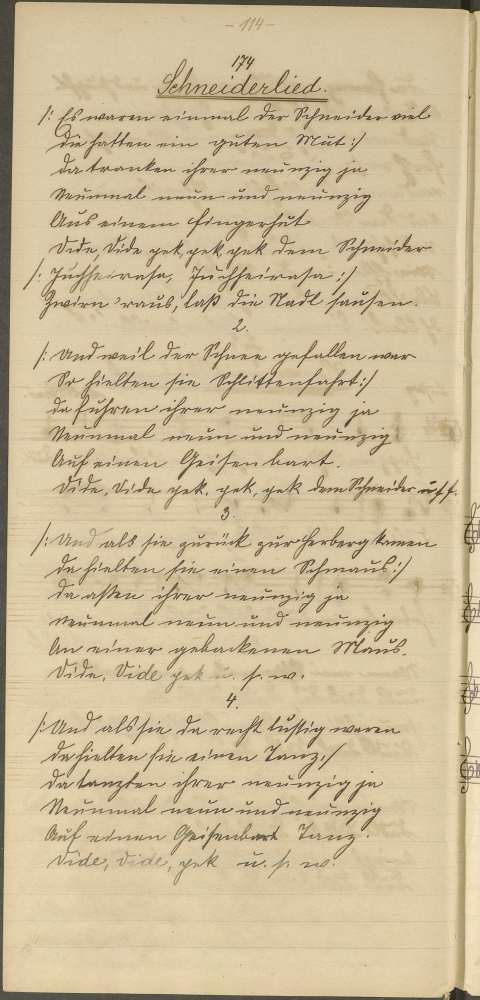 - 114 -
174
Schneiderlied.
/: Es waren einmal der Schneider viel
die hatten ein guten Mut :/
da tranken ihrer neunzig ja
Neunmal neun und neunzig
Aus einem Fingerhut
Dide, Dide gek, gek, gek dem Schneider
/: Juchheirasa, Juchheirasa :/
Zwirn 'raus, laß die Nadl sausen.
2.
/: Und weil der Schnee gefallen war
So hielten sie Schlittenfahrt :/
da fuhren ihrer neunzig ja
Neunmal neun und neunzig
Auf einen Geisenbart.
Dide, Dide gek, gek, gek dem Schneider uff.
3.
/: Und als sie zurück zur Herberg kamen
da hielten sie einen Schmaus :/
da aßen ihrer neunzig ja
neunmal neun und neunzig
An einer gebackenen Maus.
Dide, Dide gek u. s. w.
4.
/: Und als sie da recht lustig waren
da hielten sie einen Tanz :/
da tanzten ihrer neunzig ja
Neunmal neun und neunzig
Auf einen Geisenbart Tanz.
Dide, Dide, gek u. s. w.